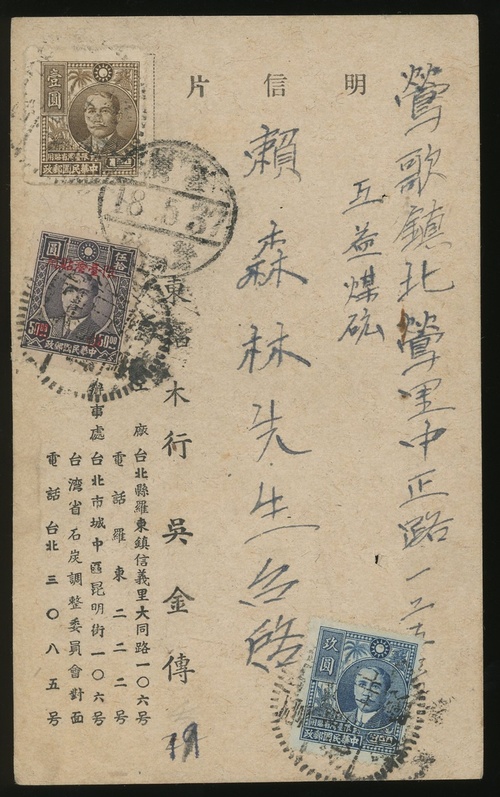 明信片
鶯歌鎮北鶯里中正路一
互益煤砿
賴森林先生台啓
東 木行 吳金傳
廠 台北縣羅東鎮信義里大同路一〇六號
電話羅東二二二號
事處 台北市城中區昆明街一〇六號
台湾省石炭調整委員會對面
電話台北三〇八五號
壹圓
限臺灣省貼用
中華民國郵政
18.5.37
伍拾圓
5000
50.00
中華民國郵政
玖圓
限臺灣省貼用
中華民國郵政